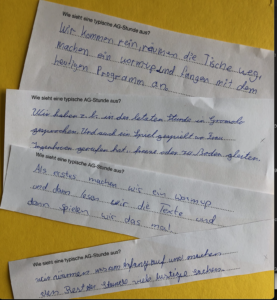 Wie sieht eine typische AG-Stunde aus?
Wir kommen rein, räumen die Tische weg,
machen ein warmup und fangen mit dem
heutigen Programm an
Wie sieht eine typische AG-Stunde aus?
Wir haben z.B. in der letzten Stunde in Gromolo
gesprochen. Und auch ein Spiel gespielt wo Frau
Irgendwen gerufen hat, zu Boden gleiten
Wie sieht eine typische AG-Stunde aus?
Als erstes machen wir ein Warmup
und dann lesen wir die Texte und
dann spielen wir das mal
Wie sieht eine typische AG-Stunde aus?
wir wärmen uns am Anfang auf und machen
den Rest der Stunde viele lustige Sachen